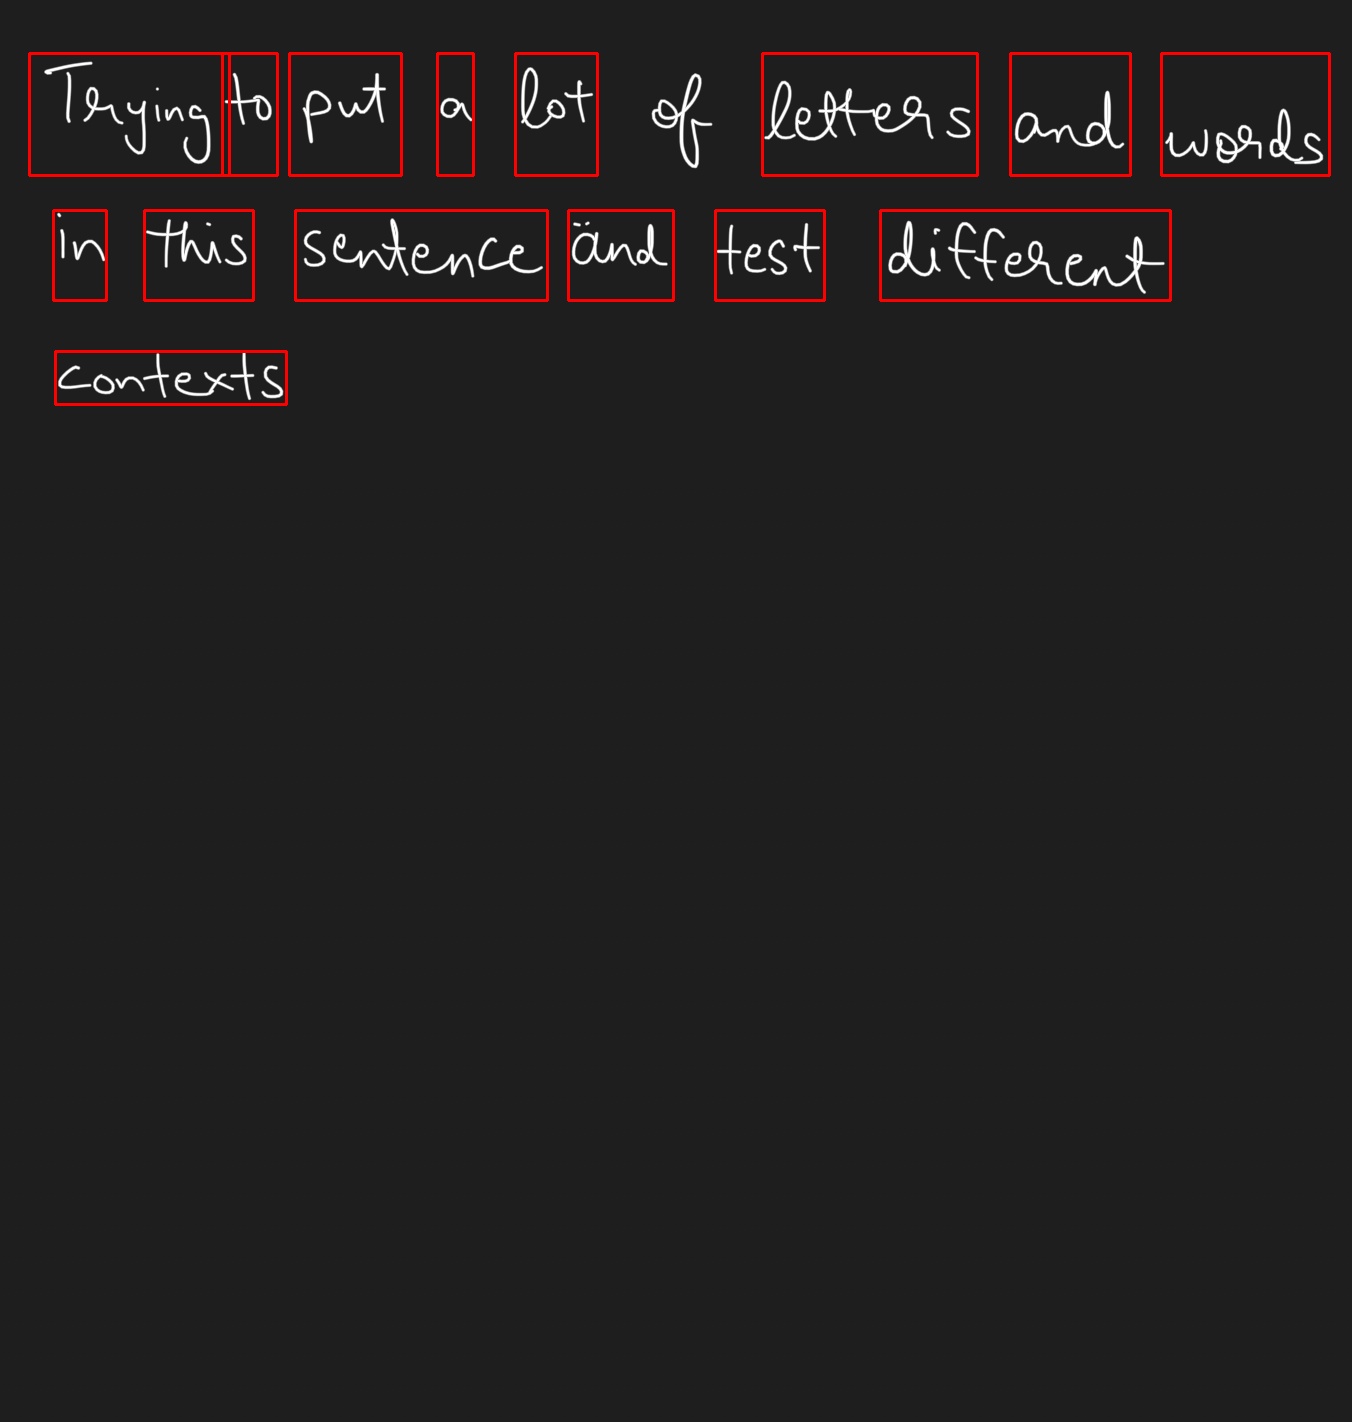 Trying to put a lot of letters and words
in this sentence änd test different
contexts